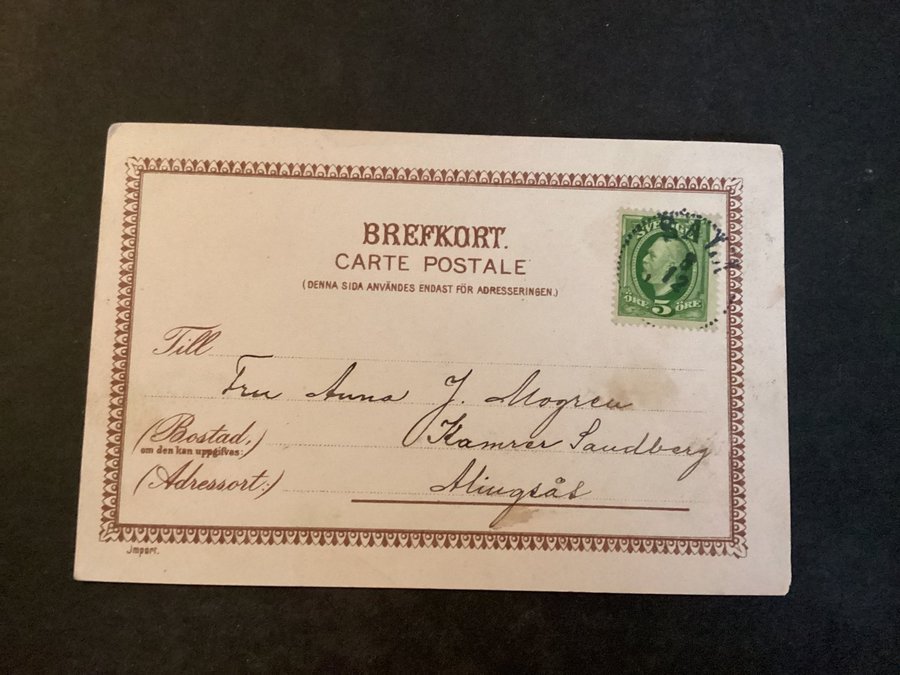 BREFKORT.
CARTE POSTALE
(DENNA SIDA ANVÄNDES ENDAST FÖR ADRESSERINGEN.)
SVERIGE
ÖRE 5 ÖRE
Till
Fru Anna J. Mogren
(Bostad,)
om den kan uppgifvas:
Kamrer Sandberg
(Adressort:)
Alingsås
Import.